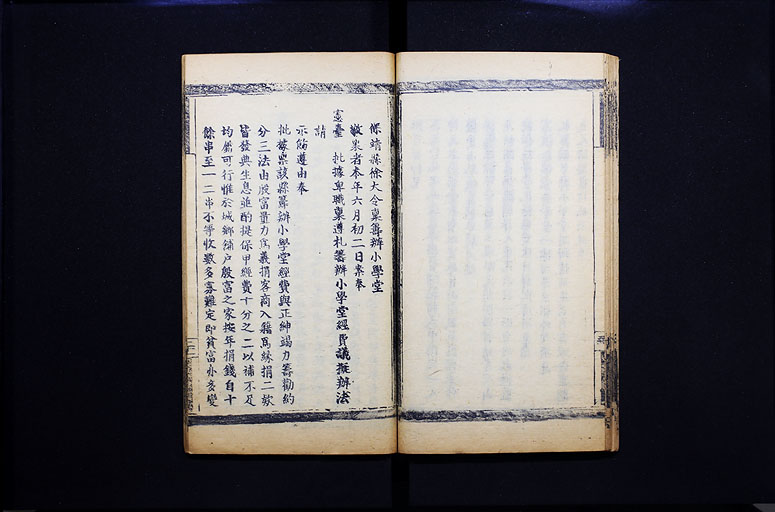 保靖縣徐大令稟籌辦小學堂
敬稟者本年六月初二日案奉
憲臺 批據卑職稟遵札籌辦小學堂經費議擬辦法
請
示飭遵由奉
批據稟該縣籌辦小學堂經費與正紳竭力籌勸約
分三法由殷富量力爲義捐客商入籍爲緣捐二款
皆發典生息並酌提保甲經費十分之二以補不足
均屬可行惟於城鄉鋪戶殷富之家按年捐錢自十
餘串至一二串不等收數多寡難定即貧富亦多變